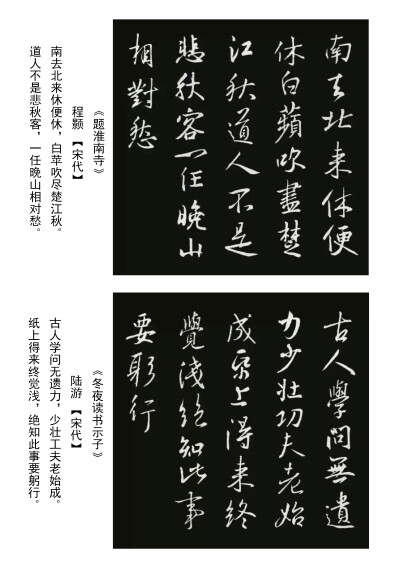 南去北来休便
休白蘋吹盡楚
江秋道人不是
悲秋客一任晚山
相對愁
《题淮南寺》
程颢【宋代】
南去北来休便休，白苹吹尽楚江秋。
道人不是悲秋客，一任晚山相对愁。
古人學問無遺
力少壮功夫老始
成帋上得来終
覺淺絕知此事
要躬行
《冬夜读书示子》
陆游【宋代】
古人学问无遗力，少壮工夫老始成。
纸上得来终觉浅，绝知此事要躬行。